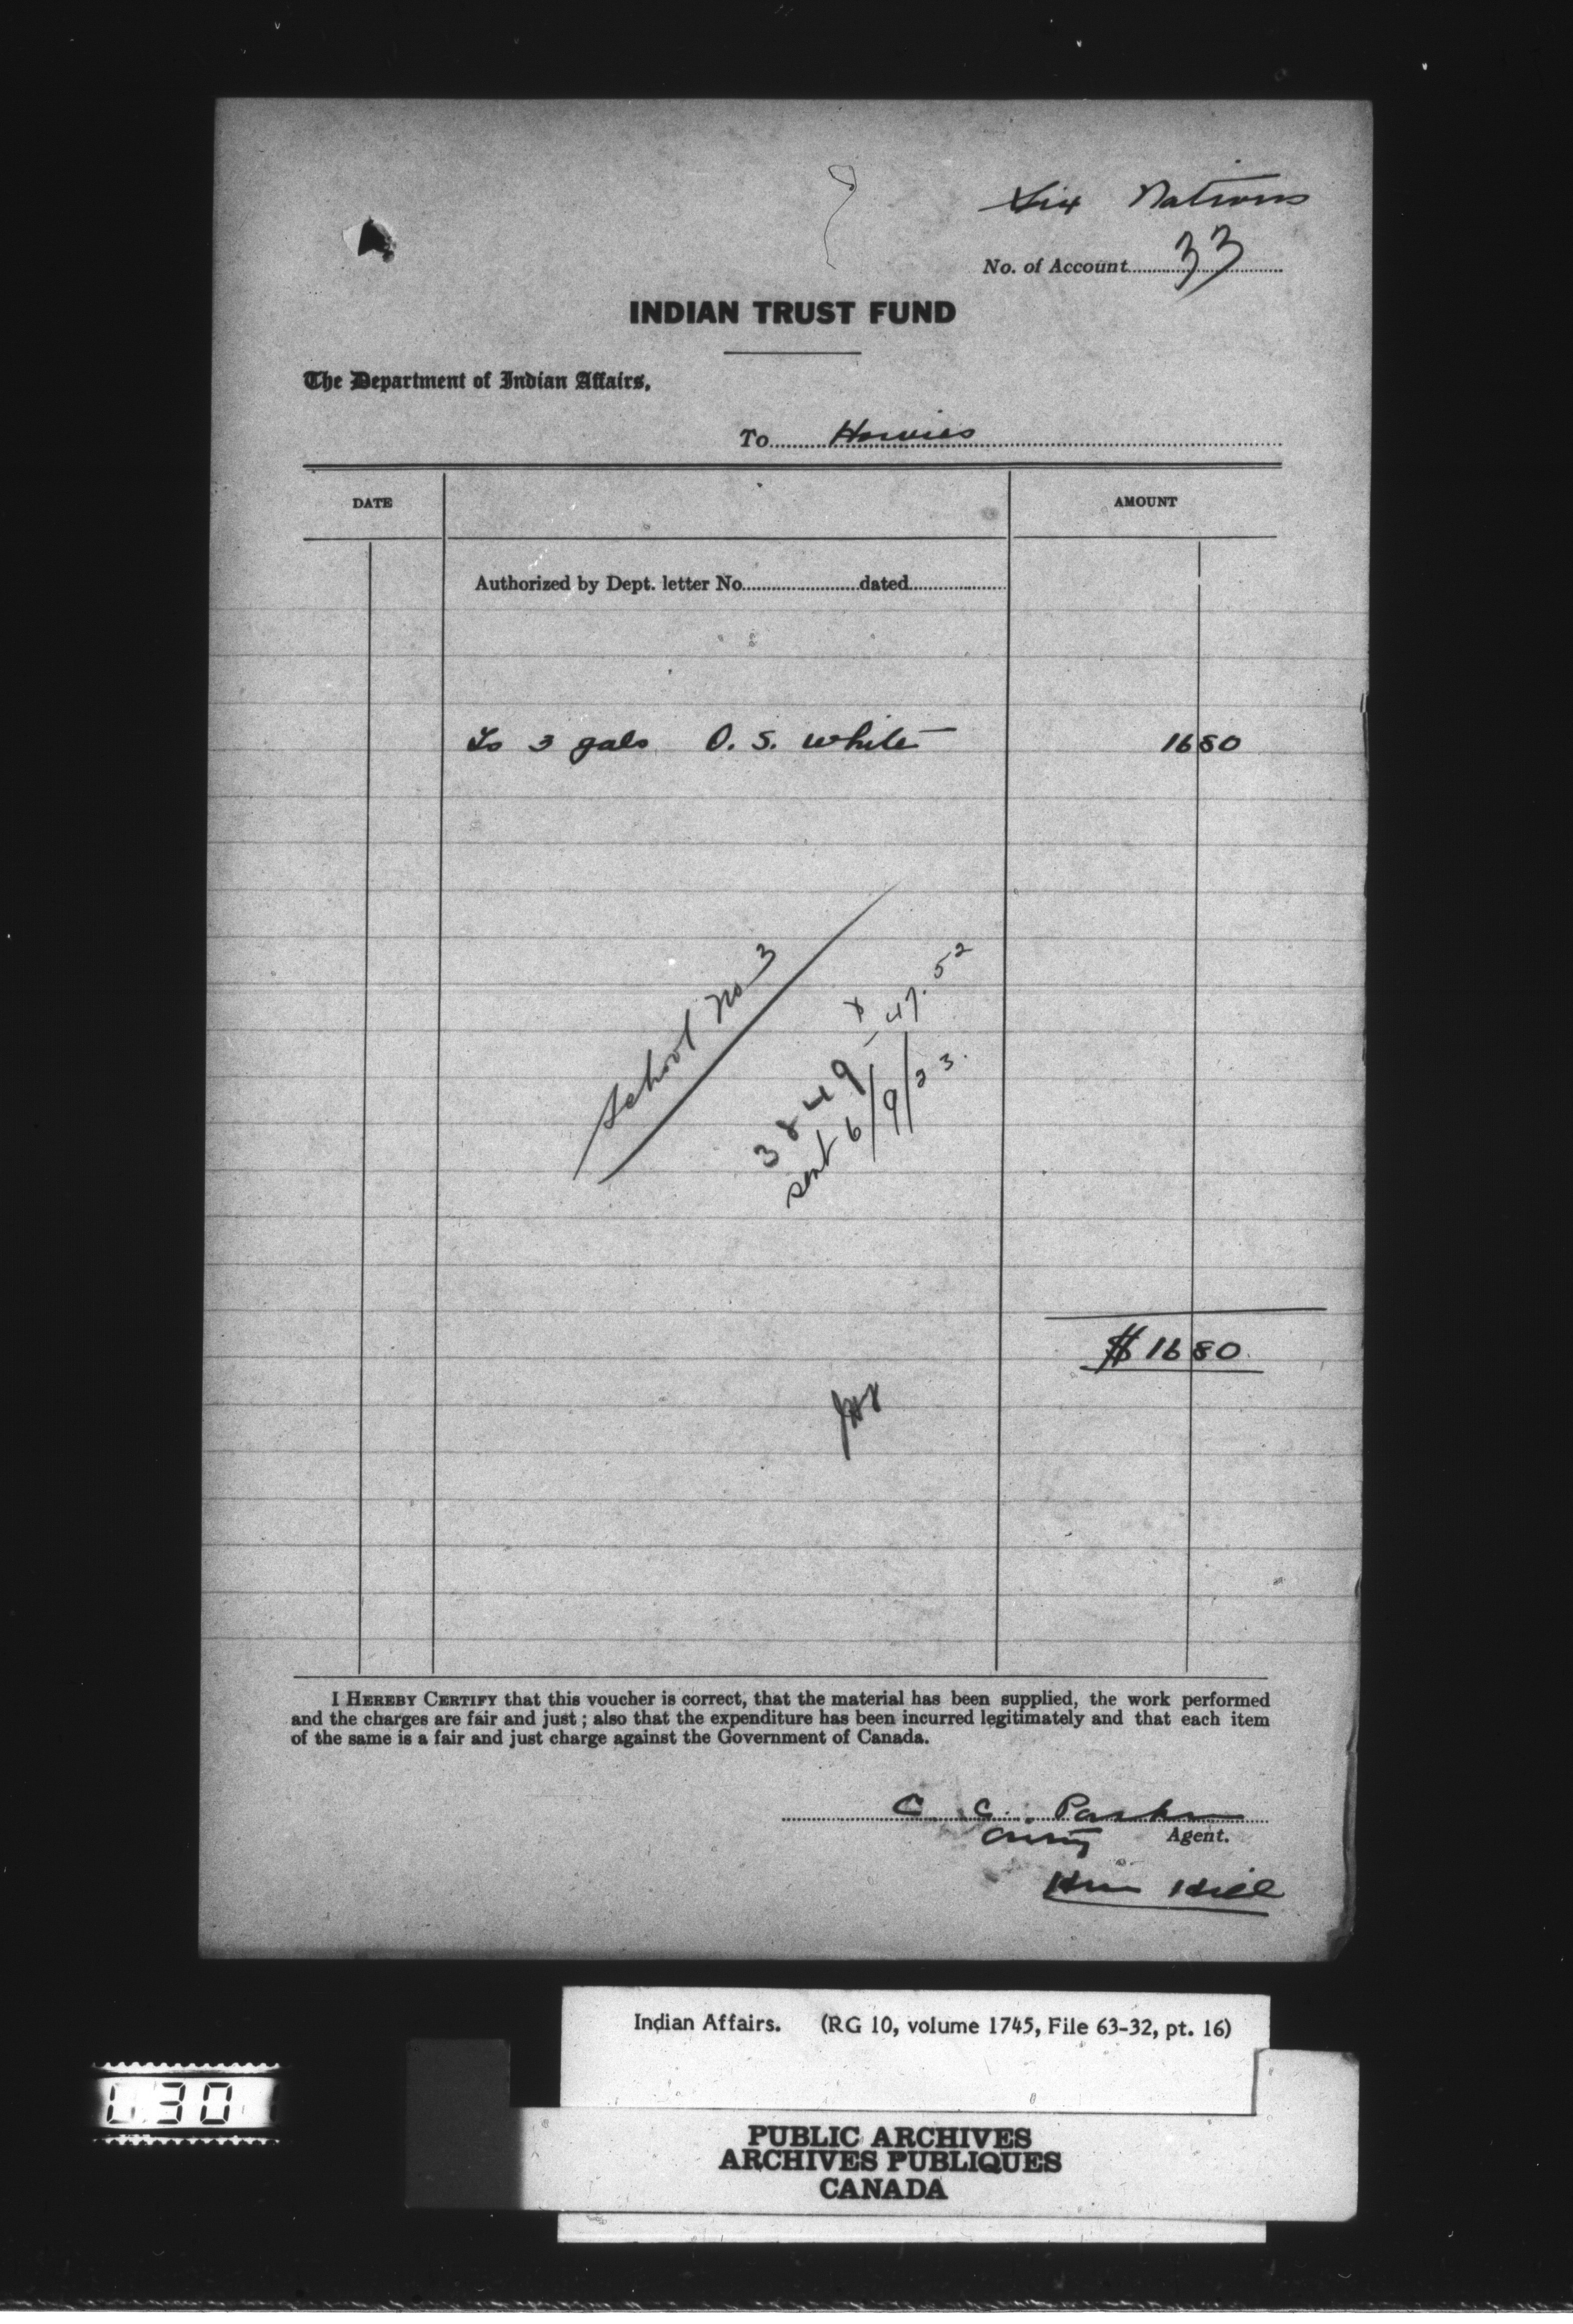 Six Nations
No. of Account 33
INDIAN TRUST FUND
The Department of Indian Affairs,
To Howies
DATE AMOUNT
Authorized by Dept. letter No. dated
To 3 gals O. S. White 16 80
School No 3
3849 47.52
sent 6/9/23.
$ 16 80
I HEREBY CERTIFY that this voucher is correct, that the material has been supplied, the work performed
and the charges are fair and just; also that the expenditure has been incurred legitimately and that each item
of the same is a fair and just charge against the Government of Canada.
C. C. Parker
Agent.
Hill
Indian Affairs. (RG 10, volume 1745, File 63-32, pt. 16)
L 30
PUBLIC ARCHIVES
ARCHIVES PUBLIQUES
CANADA